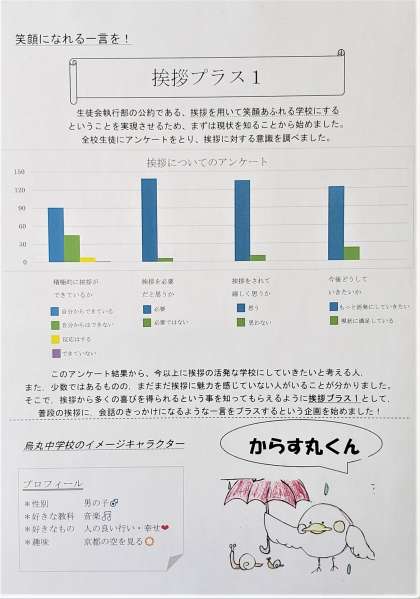 笑顔になれる一言を！
挨拶プラス１
生徒会執行部の公約である、挨拶を用いて笑顔あふれる学校にする
ということを実現させるため、まずは現状を知ることから始めました。
全校生徒にアンケートをとり、挨拶に対する意識を調べました。
挨拶についてのアンケート
150
120
90
60
30
0
積極的に挨拶が
できているか
自分からできている
自分からはできない
反応はする
できていない
挨拶を必要
だと思うか
必要
必要ではない
挨拶をされて
嬉しく思うか
思う
思わない
今後どうして
いきたいか
もっと活発にしていきたい
現状に満足している
このアンケート結果から、今以上に挨拶の活発な学校にしていきたいと考える人、
また、少数ではあるものの、まだまだ挨拶に魅力を感じていない人がいることが分かりました。
そこで、挨拶から多くの喜びを得られるという事を知ってもらえるように挨拶プラス１として、
普段の挨拶に、会話のきっかけになるような一言をプラスするという企画を始めました！
烏丸中学校のイメージキャラクター
からす丸くん
プロフィール
＊性別 男の子
＊好きな教科 音楽
＊好きなもの 人の良い行い・幸せ
＊趣味 京都の空を見る